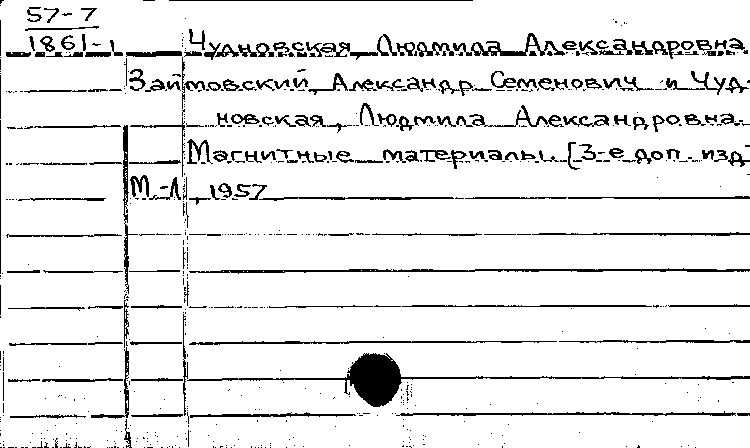 57-7
1861-1 Чудновская, Людмила Александровна
Займовский, Александр Семенович и Чуд-
новская, Людмила Александровна.
Магнитные материалы. [3-е доп. изд]
М.-Л., 1957